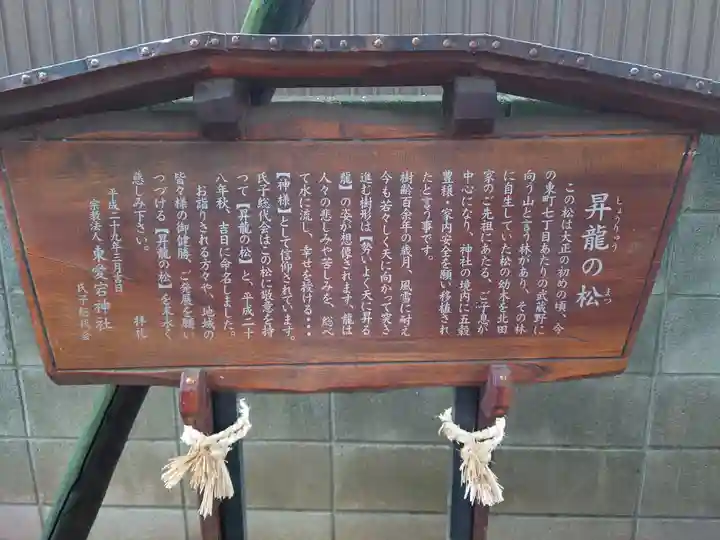 昇龍の松
しょうりゅう まつ
この松は大正の初めの頃、今
の東町七丁目あたりの武蔵野に
向う山と言う林があり、その林
に自生していた松の幼木を
家のご先祖にあたる、ご子息が
中心になり、神社の境内に五穀
豊穣・家内安全を願い移植され
たと言う事です。
樹齢百余年の歳月、風雪に耐え
今も若々しく天に向かって突き
進む樹形は【勢いよく天に昇る
龍】の姿が想像されます。龍は
人々の悲しみや苦しみを、総べ
て水に流し、幸せを授ける・・・
【神様】として信仰されています。
氏子総代会はこの松に敬意を持
って【昇龍の松】と、平成二十
八年秋、吉日に命名しました。
お詣りされる方々や、地域の
皆々様の御健勝、ご発展を願い
つづける【昇龍の松】を末永く
慈しみ下さい。
拝礼
平成二十九年三月吉日
宗教法人 東愛宕神社
氏子総代会